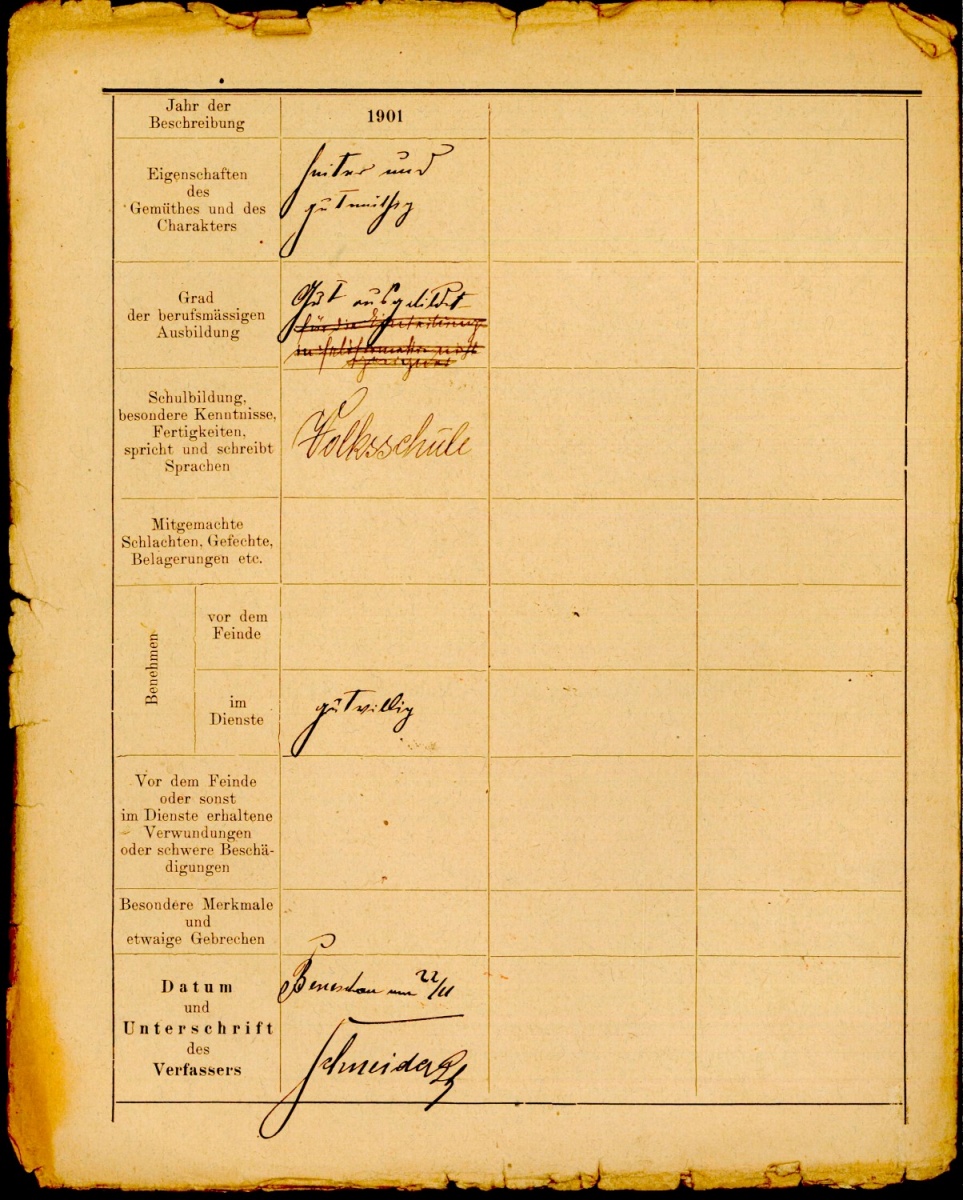 Jahr der
Beschreibung
1901
Eigenschaften
des
Gemüthes und des
Charakters
heiter und
gutmüthig
Grad
der berufsmässigen
Ausbildung
Gut ausgebildet
für die Eintheilung
nicht
geeignet
Schulbildung,
besondere Kenntnisse,
Fertigkeiten,
spricht und schreibt
Sprachen
Volksschule
Mitgemachte
Schlachten, Gefechte,
Belagerungen etc.
Benehmen
vor dem
Feinde
im
Dienste
gutwillig
Vor dem Feinde
oder sonst
im Dienste erhaltene
Verwundungen
oder schwere Beschä-
digungen
Besondere Merkmale
und
etwaige Gebrechen
Datum
und
Unterschrift
des
Verfassers
Beneschau am 22/11
Schneider